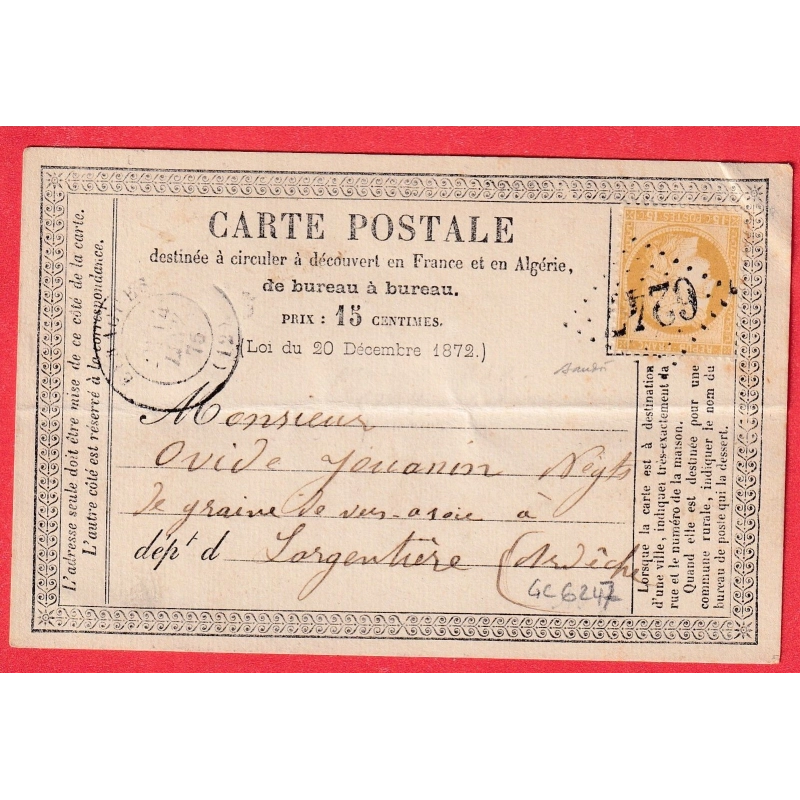 CARTE POSTALE
destinée à circuler à découvert en France et en Algérie,
de bureau à bureau.
PRIX : 15 CENTIMES.
(Loi du 20 Décembre 1872.)
L'adresse seule doit être mise de ce côté de la carte.
L'autre côté est réservé à la correspondance.
(12)
75
624
Monsieur
Ovide Jouanin Négt
de graine de vers-a soie à
dépt d Largentière (Ardèche
GC 6247
Lorsque la carte est à destination
d'une ville, indiquer très-exactement la
rue et le numéro de la maison.
Quand elle est destinée pour une
commune rurale, indiquer le nom du
bureau de poste qui la dessert.